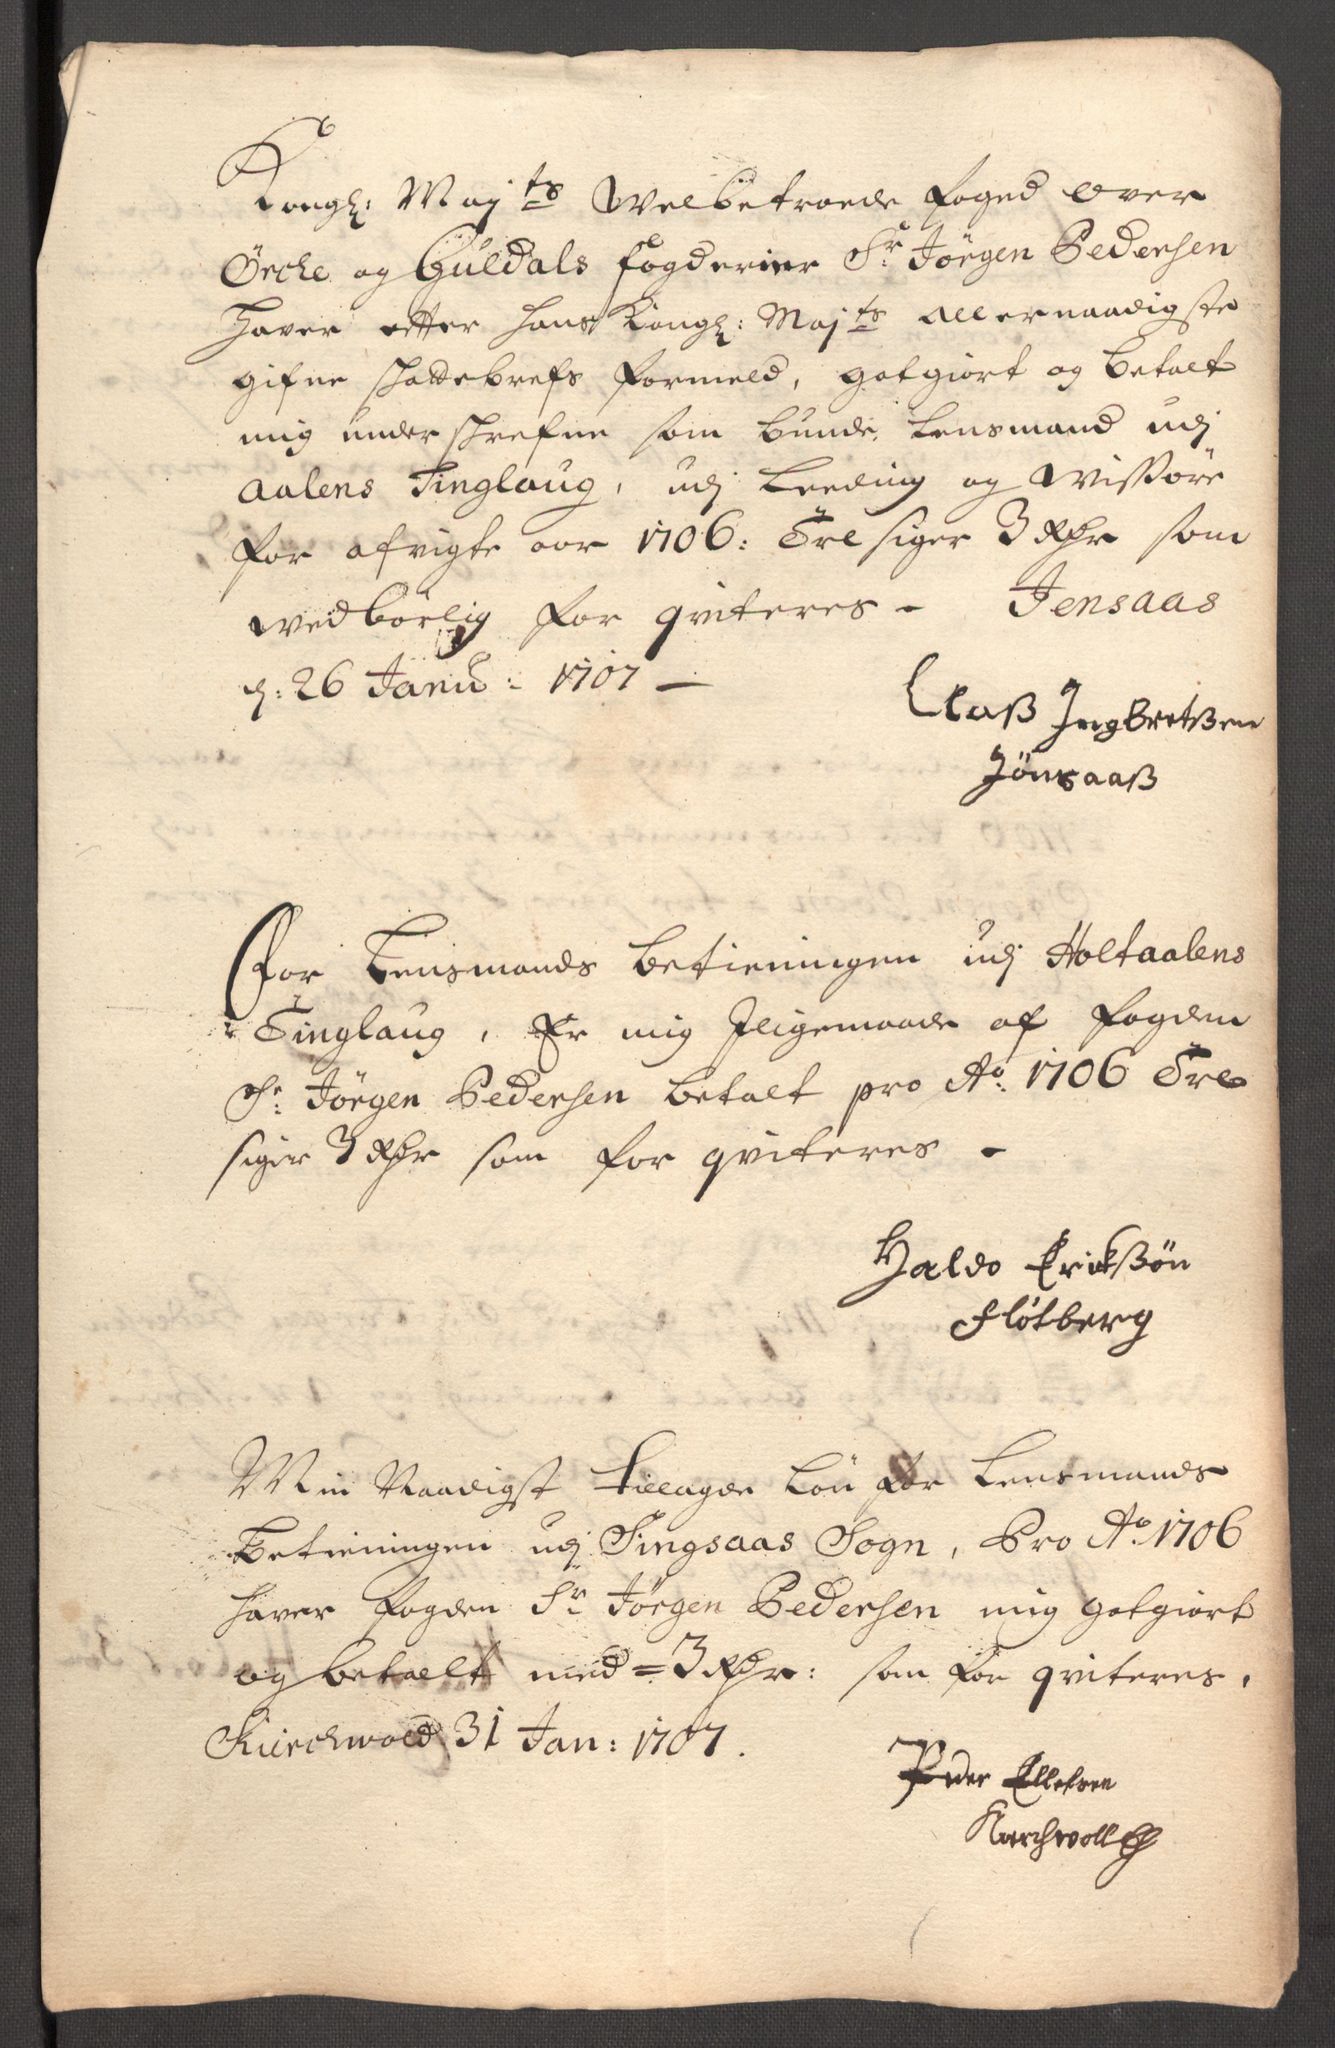 Kongl: Maj<sup>ts</sup> Welbetroede foged over
Örche og Guldals fogderier Sr Jörgen Pedersen
haver efter hans Kongl: Maj<sup>ts</sup> allernaadigste
gifne schattebrefs formeld, gotgiort og betalt
mig underschrefne som bunde lensmand udj
Aalens Tinglaug, udj Leeding og Wissöre
for afvigte aar 1706: Tre siger 3 Rdr som
wedbörlig for qviteres - Jensaas
d: 26 Janu: 1707 -
Claß Ingbretßen
Jönsaaß
For Lensmands betieningen udj Holtaalens
Tinglaug, Er mig Jligemaade af fogden
Sr: Jörgen Pedersen betalt pro Ao: 1706 Tre
siger 3 Rdr som for qviteres -
Haldo Erickßön
Flötberg
Min Naadigst tillagde Lön for Lensmands
Betieningen udj Singsaas Sogn, Pro Ao. 1706
haver fogden Sr Jörgen Pedersen mig gotgiort
og betalt med = 3 Rdr: som for qviteres,
Kirchwold 31 Jan: 1707.
Peder Ellefsen
Kirchwoll